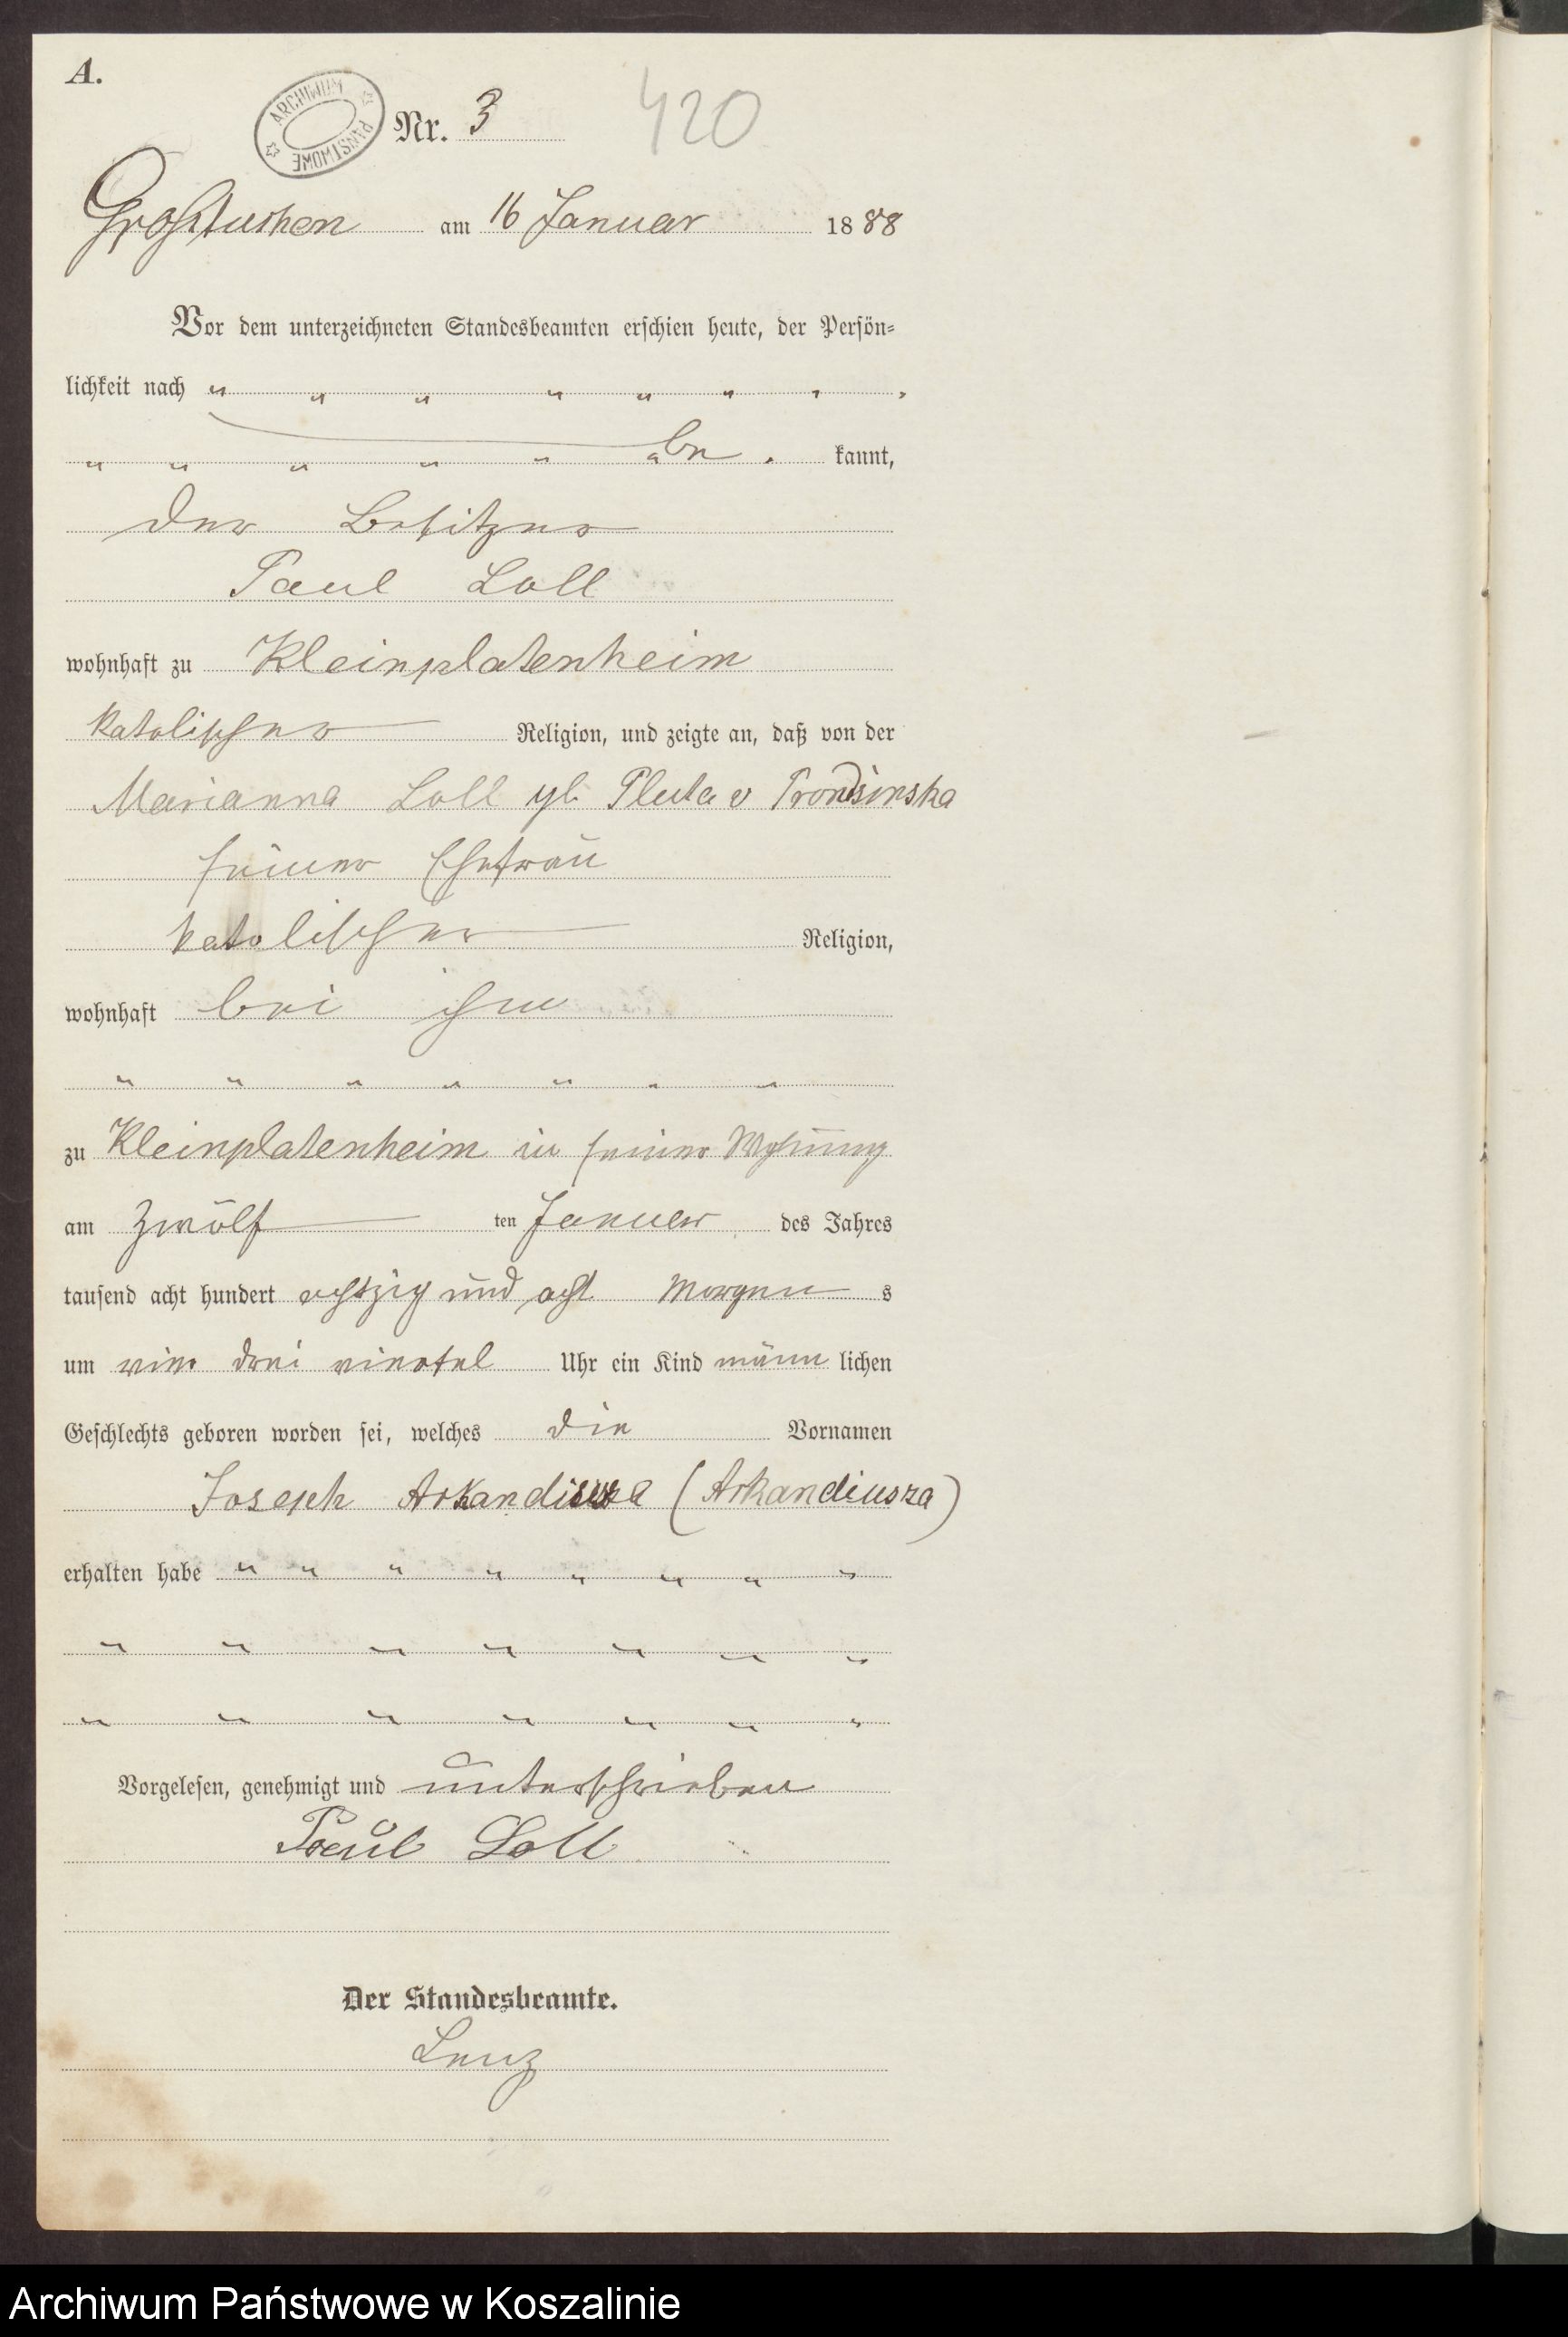 A.
ARCHIWUM PAŃSTWOWE
Nr. 3
420
Großtuchen am 16 Januar 1888
Vor dem unterzeichneten Standesbeamten erschien heute, der Persön-
lichkeit nach " " " " " " " "
" " " " " " be " kannt,
der Besitzer
Paul Loll
wohnhaft zu Kleinplatenheim
katolischer Religion, und zeigte an, daß von der
Marianna Loll gb Pluta v Prondsinska
seiner Ehefrau
katolischer Religion,
wohnhaft bei ihm
" " " " " " "
zu Kleinplatenheim in seiner Wohnung
am zwölf ten Januar des Jahres
tausend acht hundert achtzig und acht Morgen s
um vier drei viertel Uhr ein Kind männ lichen
Geschlechts geboren worden sei, welches die Vornamen
Joseph (Arkandiusza)
erhalten habe " " " " " " " "
" " " " " " "
" " " " " " "
Vorgelesen, genehmigt und unterschrieben
Paul Loll
Der Standesbeamte.
Lenz
Archiwum Państwowe w Koszalinie